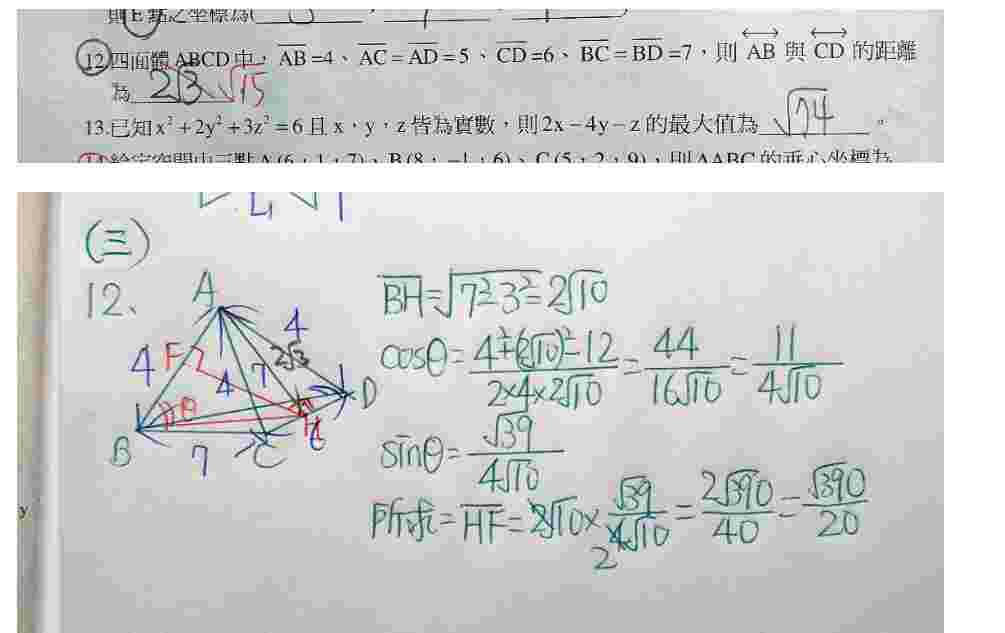 則E點之坐標為(
12.四面體ABCD中，AB=4、AC=AD=5、CD=6、BC=BD=7，則 AB 與 CD 的距離
為 2√3 √15
13.已知x²+2y²+3z²=6且x，y，z皆為實數，則2x-4y-z的最大值為 √74 。
14.給定空間中三點A(6，1，7)、B(8，-1，6)、C(5，2，9)，則△ABC的垂心坐標為
(三)
12、
A
4 F 4 2√3
4 7
θ D
B H
7 C
BH=√7²-3²=2√10
cosθ=4²+(2√10)²-12/2×4×2√10=44/16√10=11/4√10
sinθ=√39/4√10
所求=HF=2√10×√39/4√10=2√390/40=√390/20
2
y